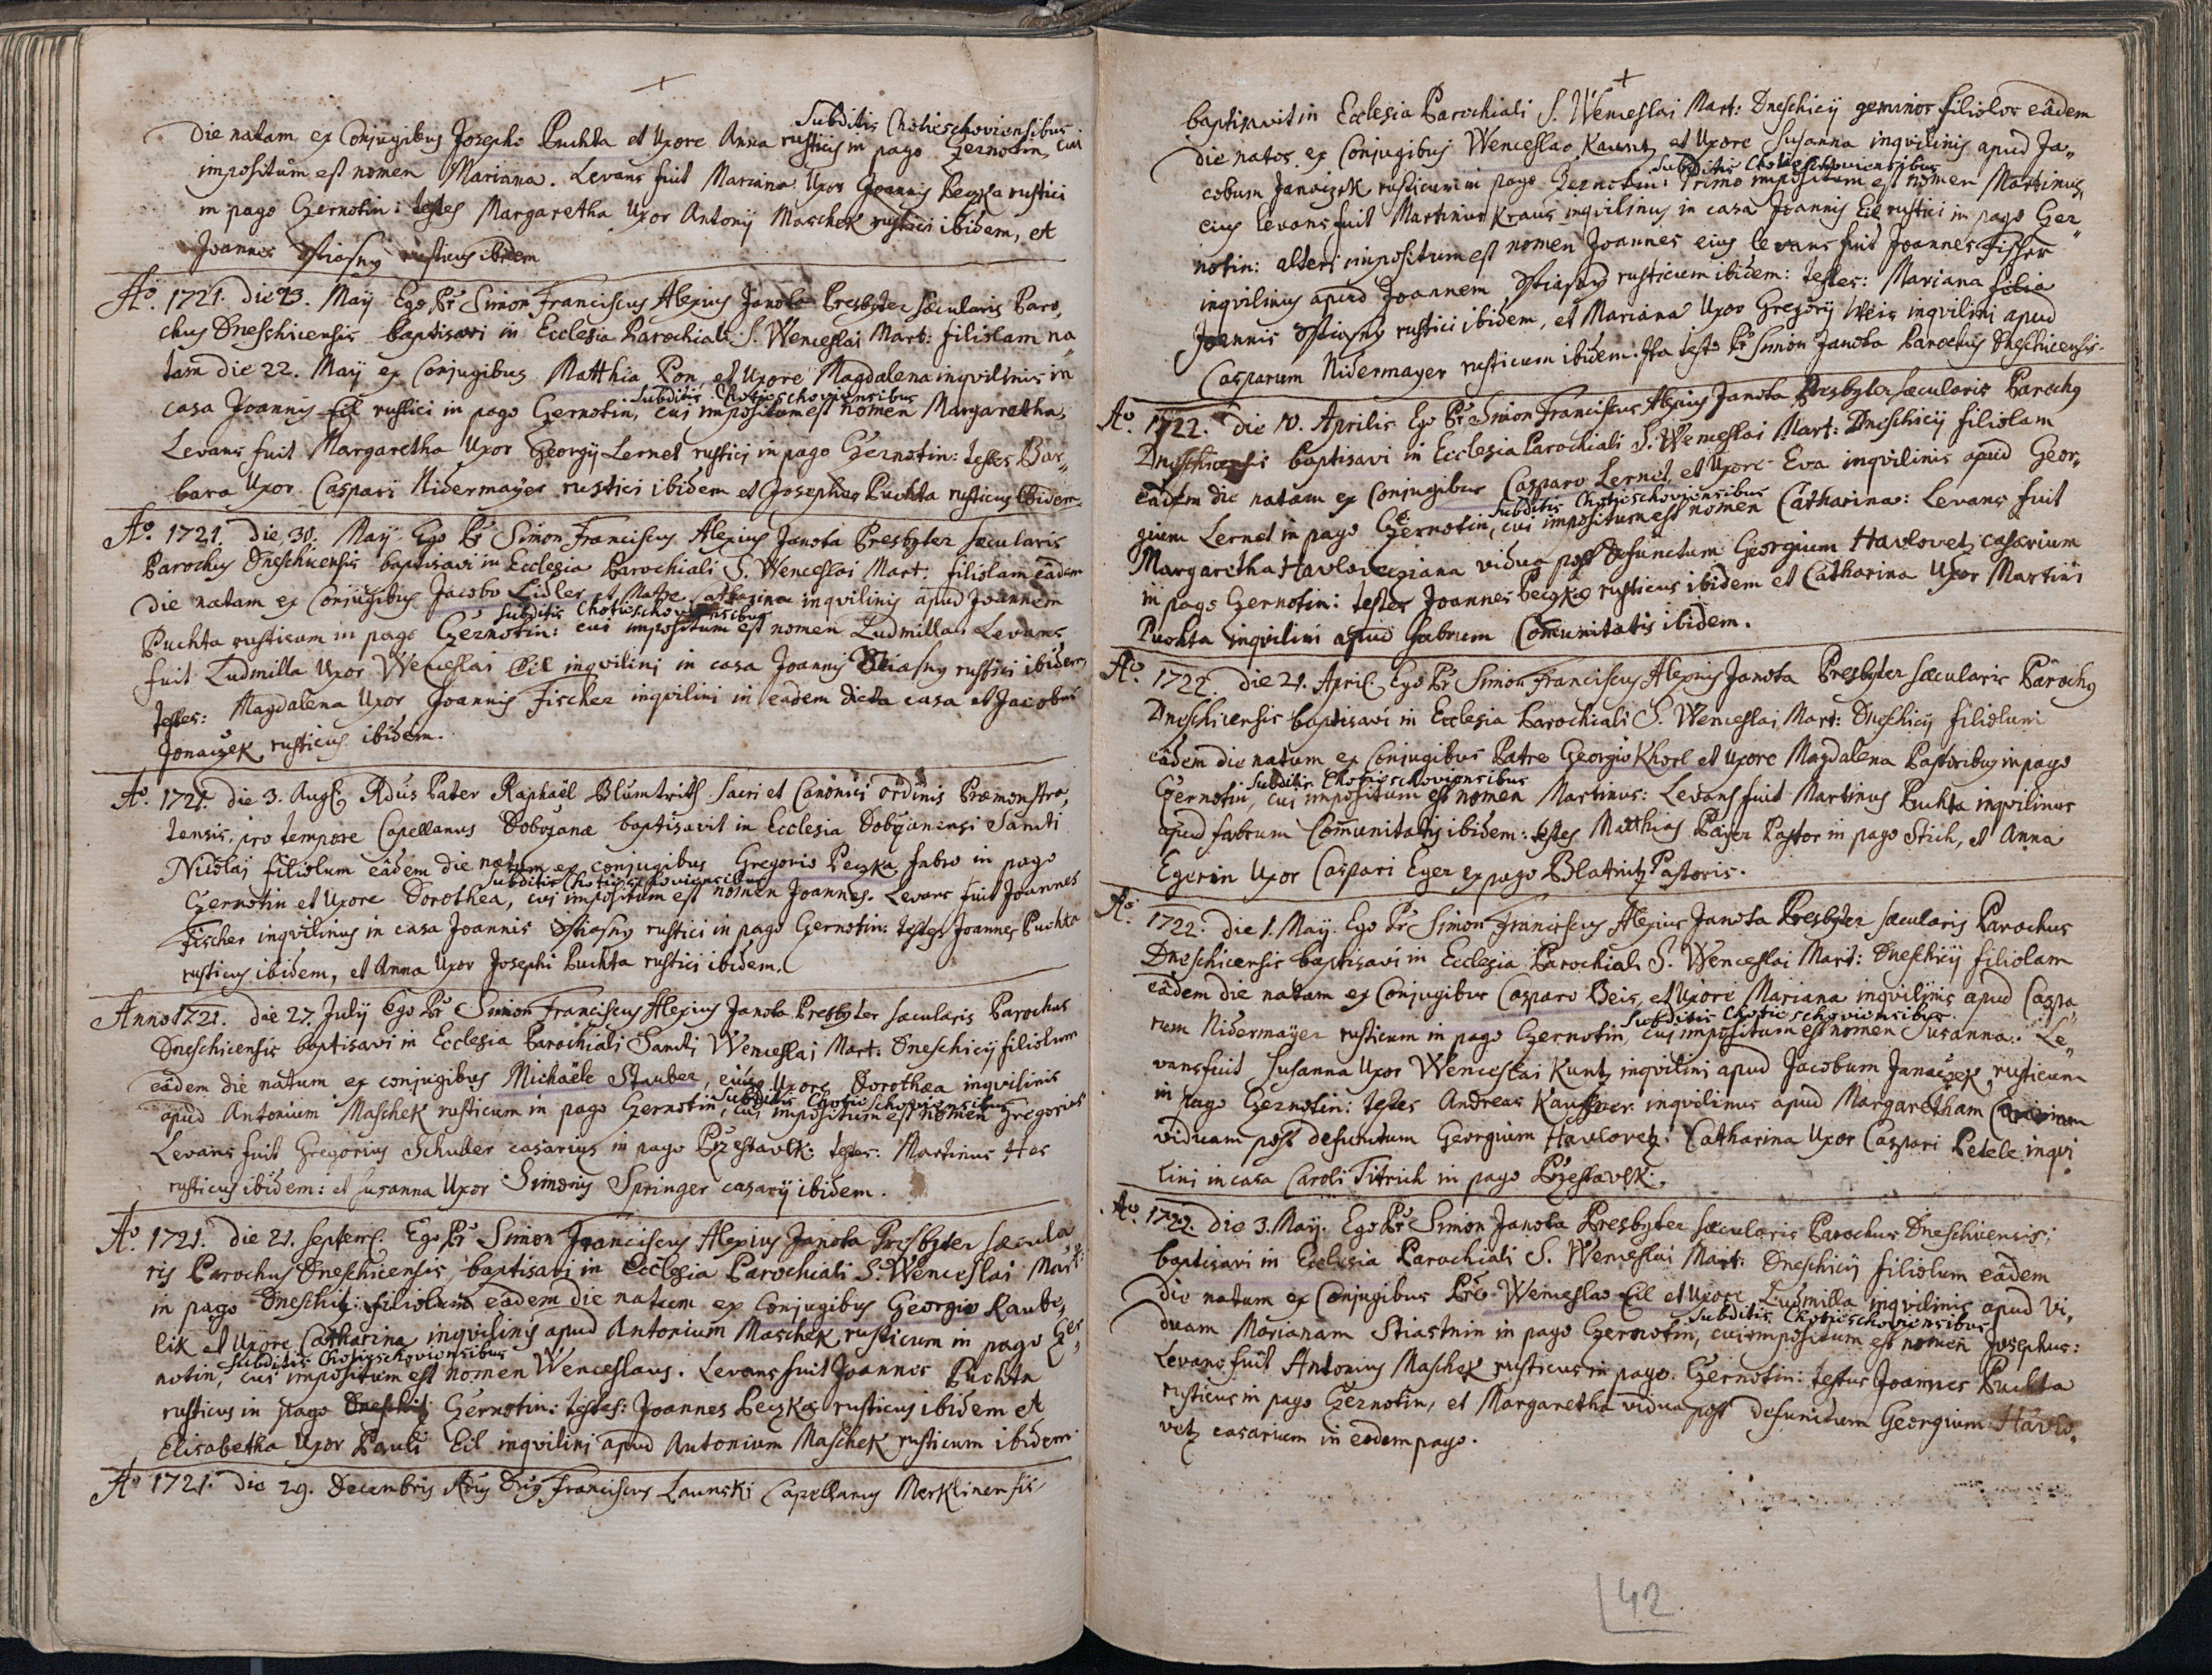 +
Subditis Chotieschoviensibus
Die natam ex Conjugibus Josepho Puchta et Uxore Anna rusticis in pago Czernotin, cui
impositum est nomen Mariana. Levans fuit Mariana Uxor Joannis Peczka rustici
in pago Czernotin: testes Margaretha Uxor Antonij Maschek rustici ibidem, et
Joannes Stiasny rusticus ibidem
Ao. 1721. Die 23. Maij Ego Pr Simon Franciscus Alexius Janota Presbyter sæcularis Paro,,
chus Dneschicensis baptisavi in Ecclesia Parochiali S. Wenceslai Mart: filiolam na,,
tam die 22. Maij ex Conjugibus Matthia Pon, et Uxore Magdalena inqvilinis in
Subditis Chotieschoviensibus
casa Joannis Eil rustici in pago Czernotin, cui impositum est nomen Margaretha,
Levans fuit Margaretha Uxor Georgij Lernet rustici in pago Czernotin: testes Bar,,
bara Uxor Caspari Nidermayer rustici ibidem et Josephus Puchta rusticus ibidem
Ao. 1721. Die 30. Maij Ego Pr Simon Franciscus Alexius Janota Presbyter sæcularis
Parochus Dneschicensis baptisavi in Ecclesia Parochiali S. Wenceslai Mart: filiolam eâdem
die natam ex Conjugibus Jacobo Lidler et Matre Catharina inqvilinis apud Joannem
Subditis Chotieschoviensibus
Puchta rusticum in pago Czernotin: cui impositum est nomen Ludmilla. Levans
fuit Ludmilla Uxor Wenceslai Eil inqvilini in casa Joannis Stiasny rustici ibidem,
testes: Magdalena Uxor Joannis Fischer inqvilini in eadem dicta casa et Jacobus
Jonaczek rusticus ibidem.
Ao. 1721. die 3. Aug. Rdus Pater Raphaël Blumtritt Sacri et Canonici ordinis Præmonstra,,
tensis, pro tempore Capellanus Dobrzanæ baptisavit in Ecclesia Dobrzanensi Sancti
Nicolaj filiolum eâdem die natum ex conjugibus Gregorio Peczka fabro in pago
Subditis Chotieschoviensibus
Czernotin et Uxore Dorothea, cui impositum est nomen Joannes. Levans fuit Joannes
Fischer inqvilinus in casa Joannis Stiasny rustici in pago Czernotin: testes Joannes Puchta
rusticus ibidem, et Anna Uxor Josephi Puchta rustici ibidem.
Anno 1721. die 27. Julij Ego Pr Simon Franciscus Alexius Janota Presbyter sæcularis Parochus
Dneschicensis baptisavi in Ecclesia Parochiali Sancti Wenceslai Mart: Dneschicij filiolum
eâdem die natum ex conjugibus Michaële Stauber, ejus Uxore Dorothæa inqvilinis
Subditis Chotieschoviensibus
apud Antonium Maschek rusticum in pago Czernotin, cui impositum est nomen Gregorius
Levans fuit Gregorius Schuller casarius in pago Przestavlk: testes: Martinus Hes
rusticus ibidem: et Susanna Uxor Simonis Springer casarij ibidem.
Ao. 1721. Die 21. Septem. Ego Pr Simon Franciscus Alexius Janota Presbyter sæcula
ris Parochus Dneschicensis, baptisavi in Ecclesia Parochiali S. Wenceslai Mart:
in pago Dneschitz filiolum eâdem die natum ex Conjugibus Georgio Raube,,
lik et Uxore Catharina inqvilinis apud Antonium Maschek rusticum in pago Czer,,
Subditis Chotieschoviensibus
notin, cui impositum est nomen Wenceslaus. Levans fuit Joannes Puchta
rusticus in pago Dneschitz Czernotin: testes: Joannes Peczka rusticus ibidem et
Elisabetha Uxor Pauli Eil inqvilini apud Antonium Maschek rusticum ibidem
Ao 1721. Die 29. Decembris Rdus Dns Franciscus Launski Capellanus Merklinensis
+
baptisavit in Ecclesia Parochiali S. Wenceslai Mart: Dneschicij geminos filiolos eâdem
die natos ex Conjugibus Wenceslao Kauntz et Uxore Susanna inqvilinis apud Ja,,
Subditis Chotieschoviensibus
cobum Janaczek rusticum in pago Czernotin: Primo impositum est nomen Martinus
ejus levans fuit Martinus Kraus inqvilinus in casa Joannis Eil rustici in pago Czer,,
notin: alteri impositum est nomen Joannes ejus levans fuit Joannes Fischer
inqvilinus apud Joannem Stiasny rusticum ibidem: testes: Mariana filia
Joannis Stiasny rustici ibidem, et Mariana Uxor Gregorij Weis inqvilini apud
Casparum Nidermayer rusticum ibidem. Ita testor Pr Simon Janota Parochus Dneschicensis.
Ao. 1722. Die 10. Aprilis Ego Pr Simon Franciscus Alexius Janota Presbyter sæcularis Parochus
Dneschicensis baptisavi in Ecclesia Parochiali S. Wenceslai Mart: Dneschicij filiolam
eâdem die natam ex Conjugibus Casparo Lernet, et Uxore Eva inqvilinis apud Geor,,
Subditis Chotieschoviensibus
gium Lernet in pago Czernotin, cui impositum est nomen Catharina: Levans fuit
Margaretha Havlovecziana vidua post defunctum Georgium Havlovetz casarium
in pago Czernotin: testes Joannes Peczka rusticus ibidem et Catharina Uxor Martini
Puchta inqvilini apud fabrum Comunitatis ibidem.
Ao. 1722. Die 21. April. Ego Pr Simon Franciscus Alexius Janota Presbyter sæcularis Parochus
Dneschicensis baptisavi in Ecclesia Parochiali S. Wenceslai Mart: Dneschicij filiolum
eâdem die natum ex Conjugibus Patre Georgio Khorl et Uxore Magdalena Pastoribus in pago
Subditis Chotieschoviensibus
Czernotin, cui impositum est nomen Martinus: Levans fuit Martinus Puchta inqvilinus
apud fabrum Comunitatis ibidem: testes Matthias Payer Pastor in pago Stich, et Anna
Egerin Uxor Caspari Eger ex pago Blatnitz Pastoris.
Ao. 1722. Die 1. Maij Ego Pr Simon Franciscus Alexius Janota Presbyter sæcularis Parochus
Dneschicensis baptisavi in Ecclesia Parochiali S. Wenceslai Mart: Dneschicij filiolam
eâdem die natam ex Conjugibus Casparo Beis, et Uxore Mariana inqvilinis apud Caspa,,
Subditis Chotieschoviensibus
rum Nidermayer rusticum in pago Czernotin, cui impositum est nomen Susanna. Le,,
vans fuit Susanna Uxor Wenceslai Kuntz inqvilini apud Jacobum Janaczek rusticum
in pago Czernotin: testes Andreas Kauffner inqvilinus apud Margaretham Casariam
viduam post defunctum Georgium Havlovetz: Catharina Uxor Caspari Petele inqvi,,
lini in casa Caroli Titrich in pago Przestavlk.
Ao. 1722. Die 3. Maij. Ego Pr Simon Janota Presbyter sæcularis Parochus Dneschicensis;
baptisavi in Ecclesia Parochiali S. Wenceslai Mart: Dneschicij filiolum eâdem
die natum ex Conjugibus Pre Wenceslao Eil et Uxore Ludmilla inqvilinis apud Vi,,
Subditis Chotieschoviensibus
duam Marianam Stiastnin in pago Czernotin, cui impositum est nomen Josephus:
Levans fuit Antonius Maschek rusticus in pago Czernotin: testes Joannes Puchta
rusticus in pago Czernotin, et Margaretha vidua post defunctum Georgium Havlo,,
vetz casarium in eodem pago.
42